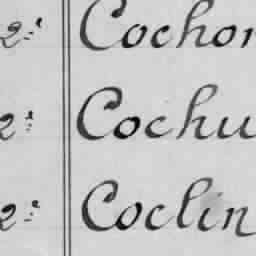 2.º Cochor
2.º Cochu
2.º Coclin